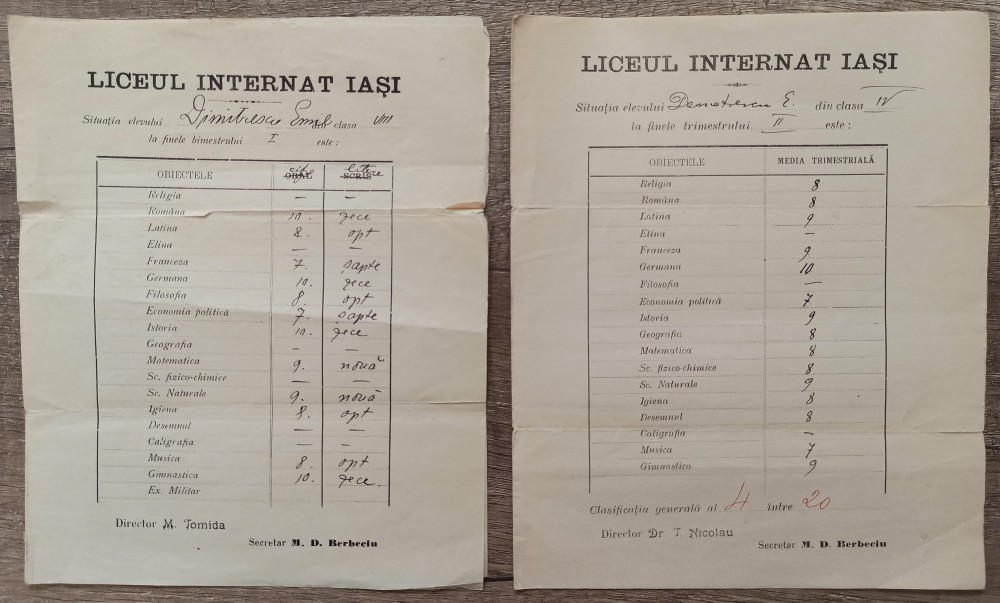 LICEUL INTERNAT IAȘI
Situația elevului Dimitrescu Emil din clasa VIII
la finele bimestrului I este :
OBIECTELE cifre ORAL litere SCRIS
Religia — —
Româna 10. zece
Latina 8. opt
Elina — —
Franceza 7. șapte
Germana 10. zece
Filosofia 8. opt
Economia politică 7. șapte
Istoria 10. zece
Geografia — —
Matematica 9. nouă
Sc. fizico-chimice — —
Sc. Naturale 9. nouă
Igiena 8. opt
Desemnul — —
Caligrafia — —
Musica 8. opt
Gimnastica 10. zece.
Ex. Militar
Director M. Tomida
Secretar M. D. Berbeciu
LICEUL INTERNAT IAȘI
Situația elevului Demetrescu E. din clasa IV
la finele trimestrului II este :
OBIECTELE MEDIA TRIMESTRIALĂ
Religia 8
Româna 8
Latina 9
Elina —
Franceza 9
Germana 10
Filosofia —
Economia politică 7
Istoria 9
Geografia 8
Matematica 8
Sc. fizico-chimice 8
Sc. Naturale 9
Igiena 8
Desemnul 8
Caligrafia —
Musica 7
Gimnastica 9
Clasificația generală al 4 între 20
Director Dr T. Nicolau
Secretar M. D. Berbeciu